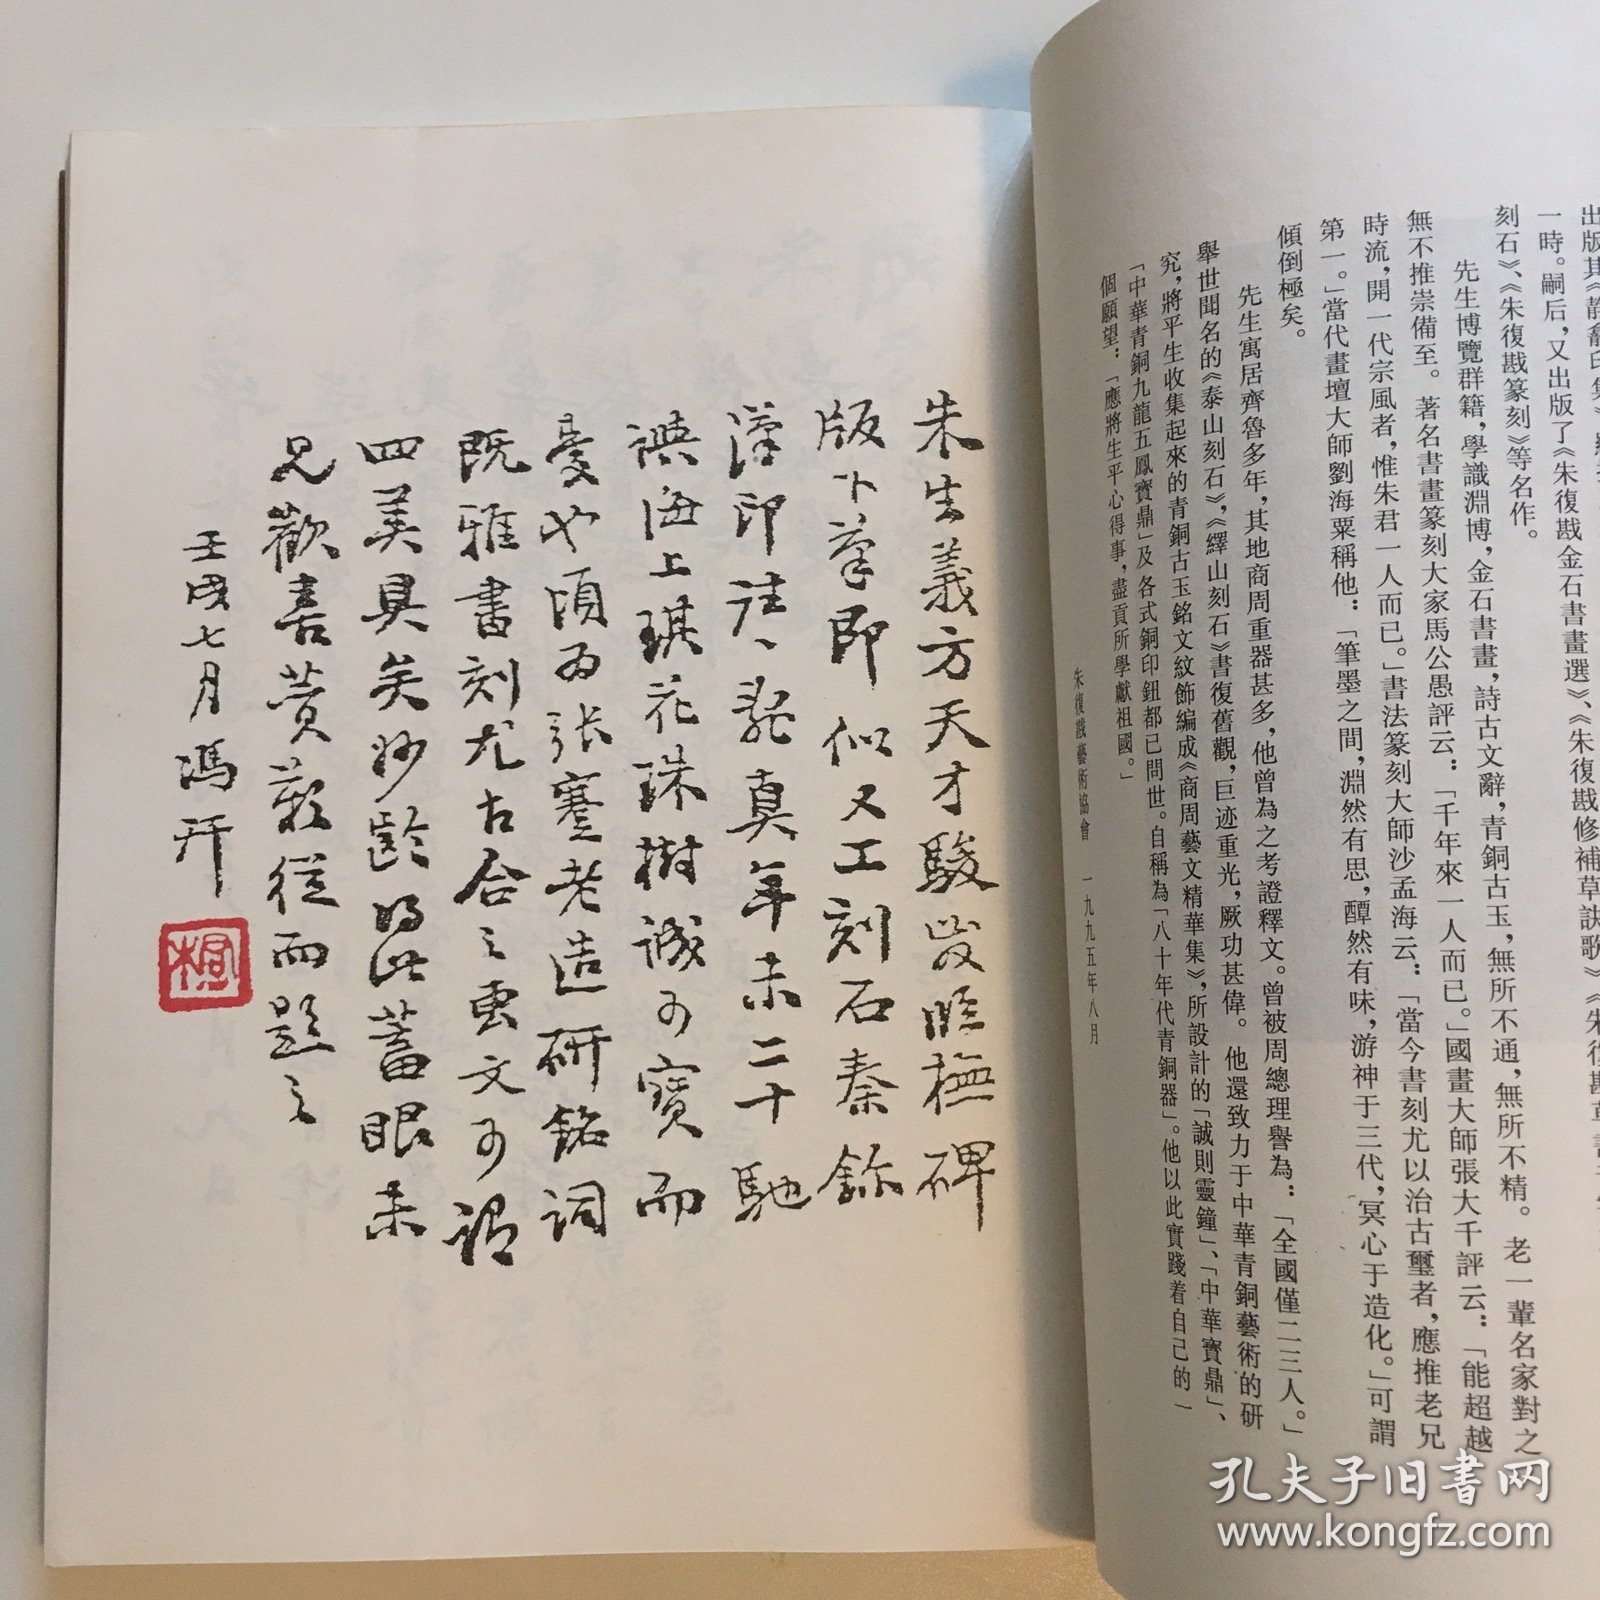 出版其《靜龕印集》
一時。嗣后，又出版了《朱復戡金石書畫選》、《朱復戡修補草訣歌》、《朱復戡草書
刻石》、《朱復戡篆刻》等名作。
先生博覽群籍，學識淵博，金石書畫，詩古文辭，青銅古玉，無所不通，無所不精。老一輩名家對之
無不推崇備至。著名書畫篆刻大家馬公愚評云：「千年來一人而已。」國畫大師張大千評云：「能超越
時流，開一代宗風者，惟朱君一人而已。」書法篆刻大師沙孟海云：「當今書刻尤以治古璽者，應推老兄
第一。」當代畫壇大師劉海粟稱他：「筆墨之間，淵然有思，醰然有味，游神于三代，冥心于造化。」可謂
傾倒極矣。
先生寓居齊魯多年，其地商周重器甚多，他曾為之考證釋文。曾被周總理譽為：「全國僅二三人。」
舉世聞名的《泰山刻石》，《繹山刻石》書復舊觀，巨迹重光，厥功甚偉。他還致力于中華青銅藝術的研
究，將平生收集起來的青銅古玉銘文紋飾編成《商周藝文精華集》，所設計的「誠則靈鐘」、「中華寶鼎」、
「中華青銅九龍五鳳寶鼎」及各式銅印鈕都已問世。自稱為「八十年代青銅器」。他以此實踐着自己的一
個願望：「應將生平心得事，盡貢所學獻祖國。」
朱復戡藝術協會 一九九五年八月
朱生義方天才駿發臨橅碑
版下筆即似又工刻石秦鉨
漢印往往亂真年未二十馳
譽海上琪花珠樹誠可寶而
憂也頃為張蹇老造研銘詞
既雅書刻尤古合之重文可謂
四美具矣妙齡得此蓄眼未
見歡喜贊歎從而題之
壬戌七月馮幵
孔夫子旧书网
www.kongfz.com